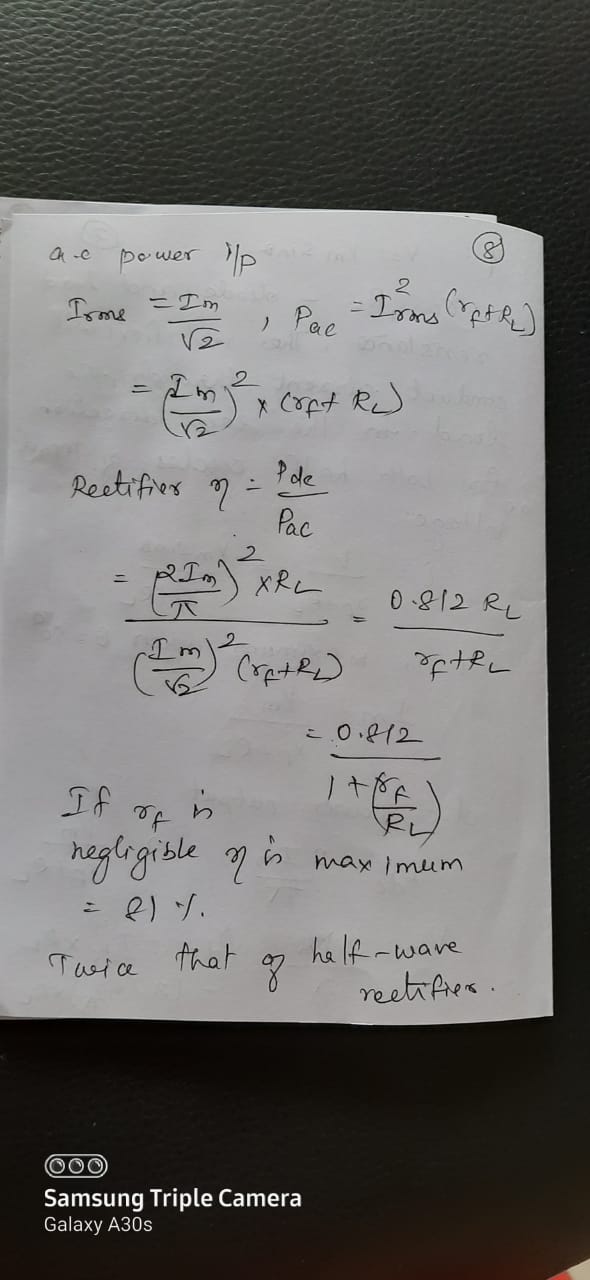 8
a.c power i/p
Irms = Im/√2 , Pac = I²rms (rf+RL)
= (Im/√2)² x (rf+ RL)
Rectifier η = Pdc/Pac
= (2Im/π)² xRL / (Im/√2)² (rf+RL) = 0.812 RL / rf+RL
= 0.812 / 1+(rf/RL)
If rf is
negligible η is maximum
= 81 %.
Twice that of half-wave
rectifier.
Samsung Triple Camera
Galaxy A30s